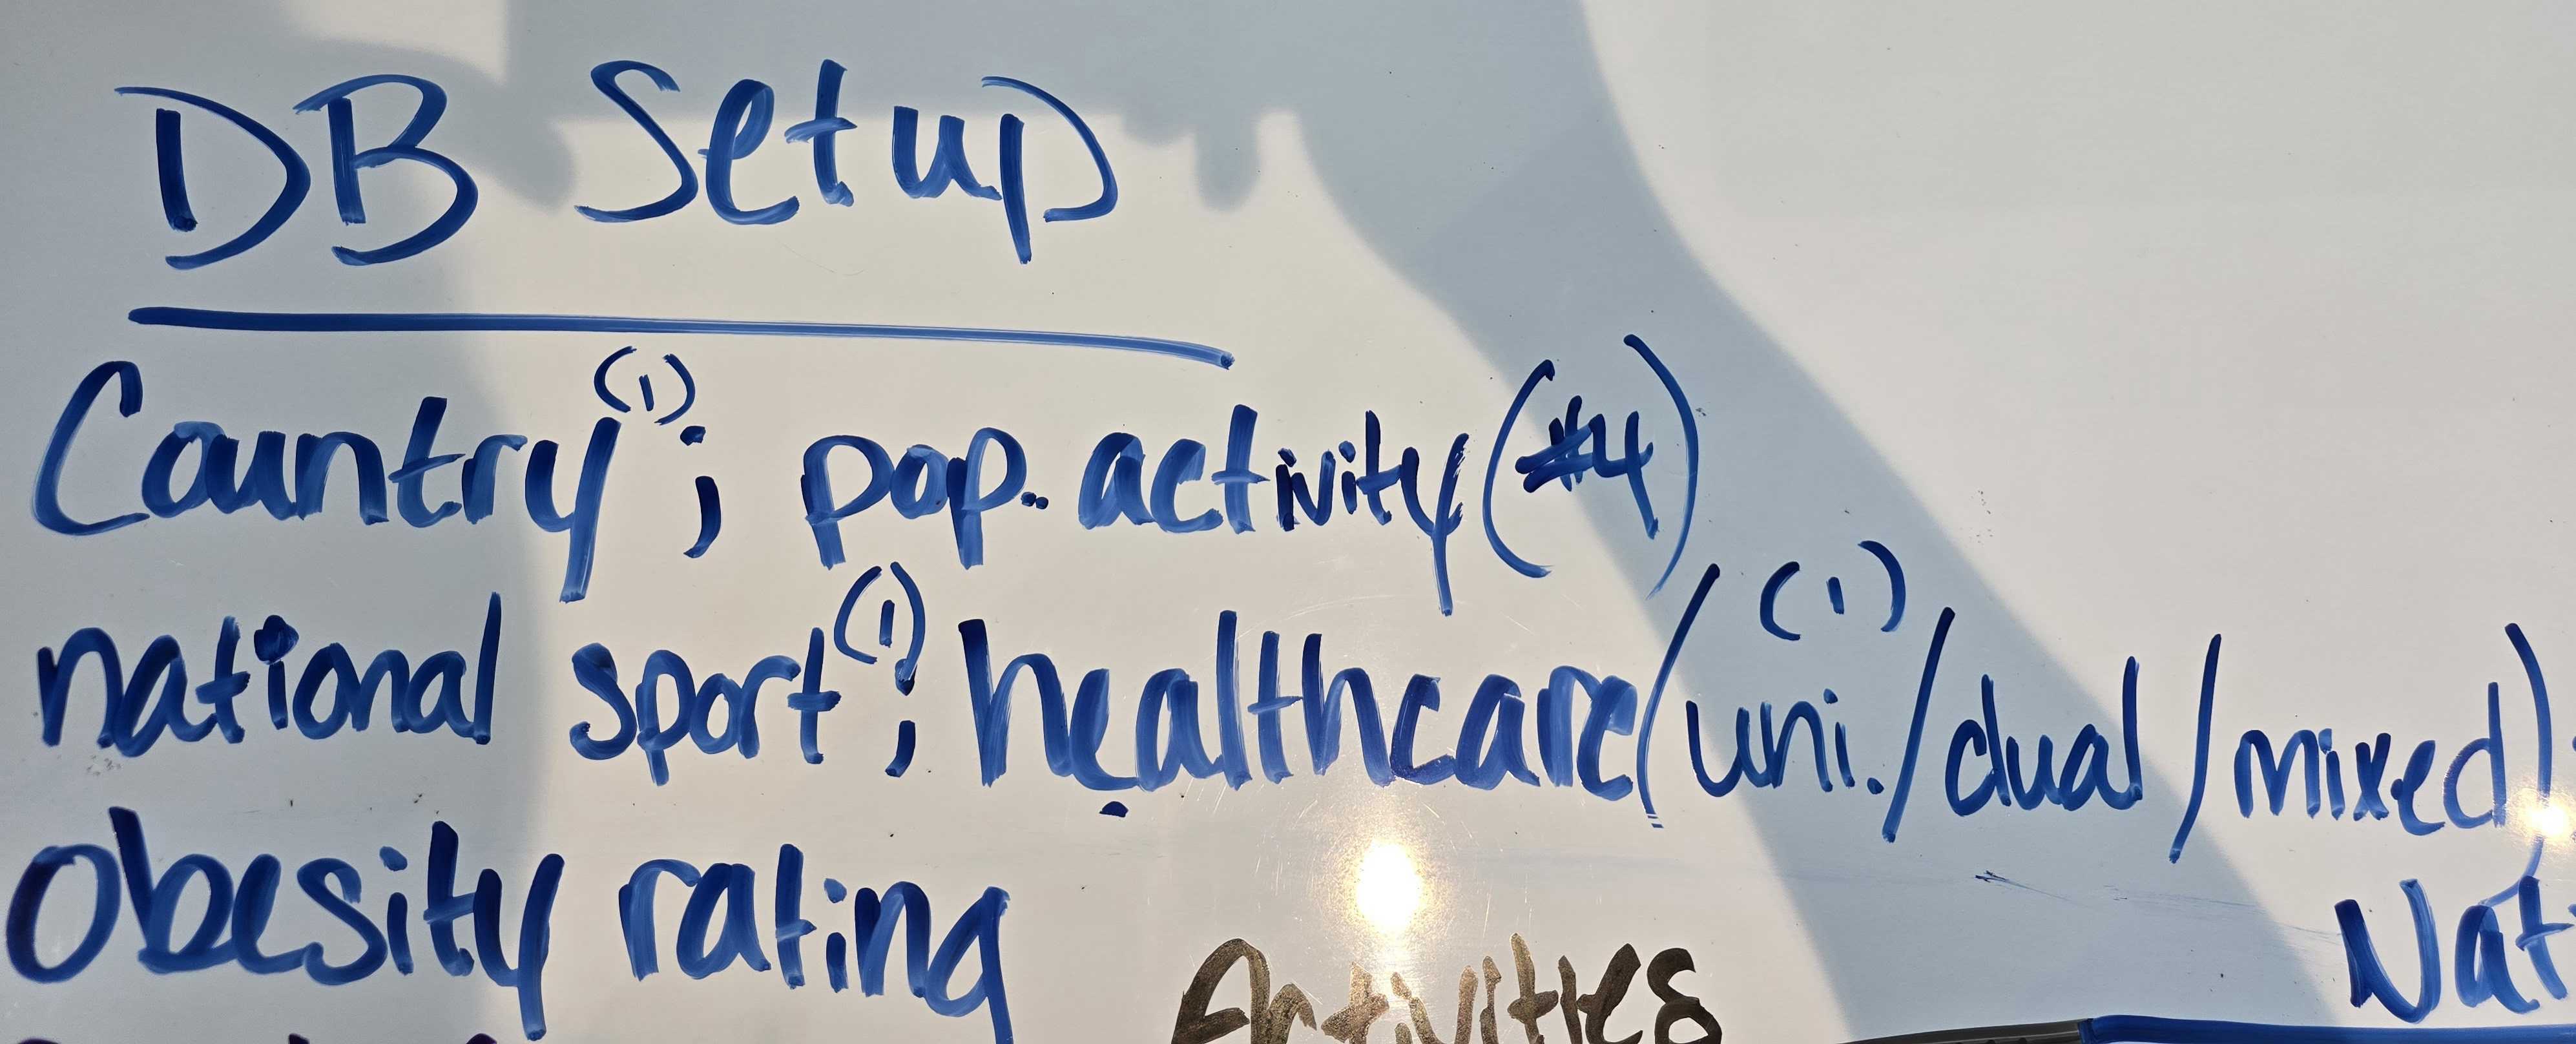 DB Setup
Country(1); pop. activity (#4)
national sport(1); healthcare (uni./dual/mixed)(1)
Obesity rating
Activities